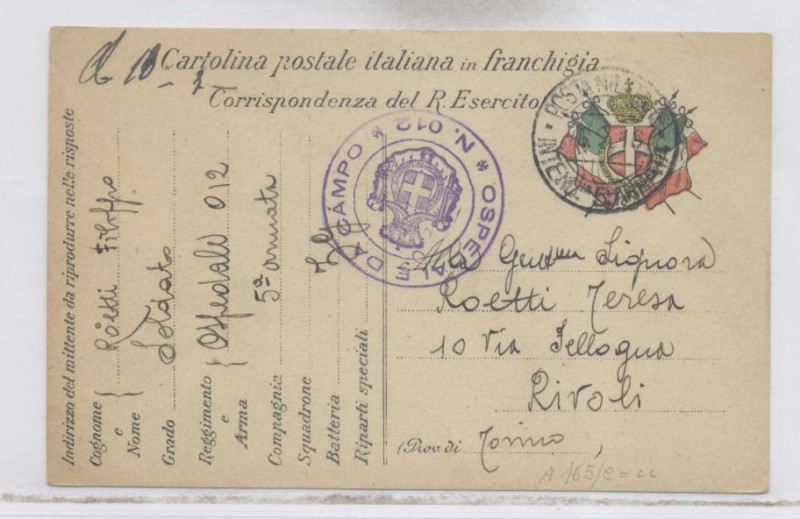 Cartolina postale italiana in franchigia
Corrispondenza del R. Esercito
POSTA MILITARE
OSPEDALE DA CAMPO * N. 012 *
Indirizzo del mittente da riprodurre nelle risposte
Cognome e Nome { Roetti Filippo
Grado Soldato
Reggimento e Arma { Ospedale 012
Compagnia 5a armata
Squadrone
Batteria
Riparti speciali
Alla Gent.ma Signora
Roetti Teresa
10 Via Fellogna
Rivoli
(Prov. di Torino)
A 165/C=